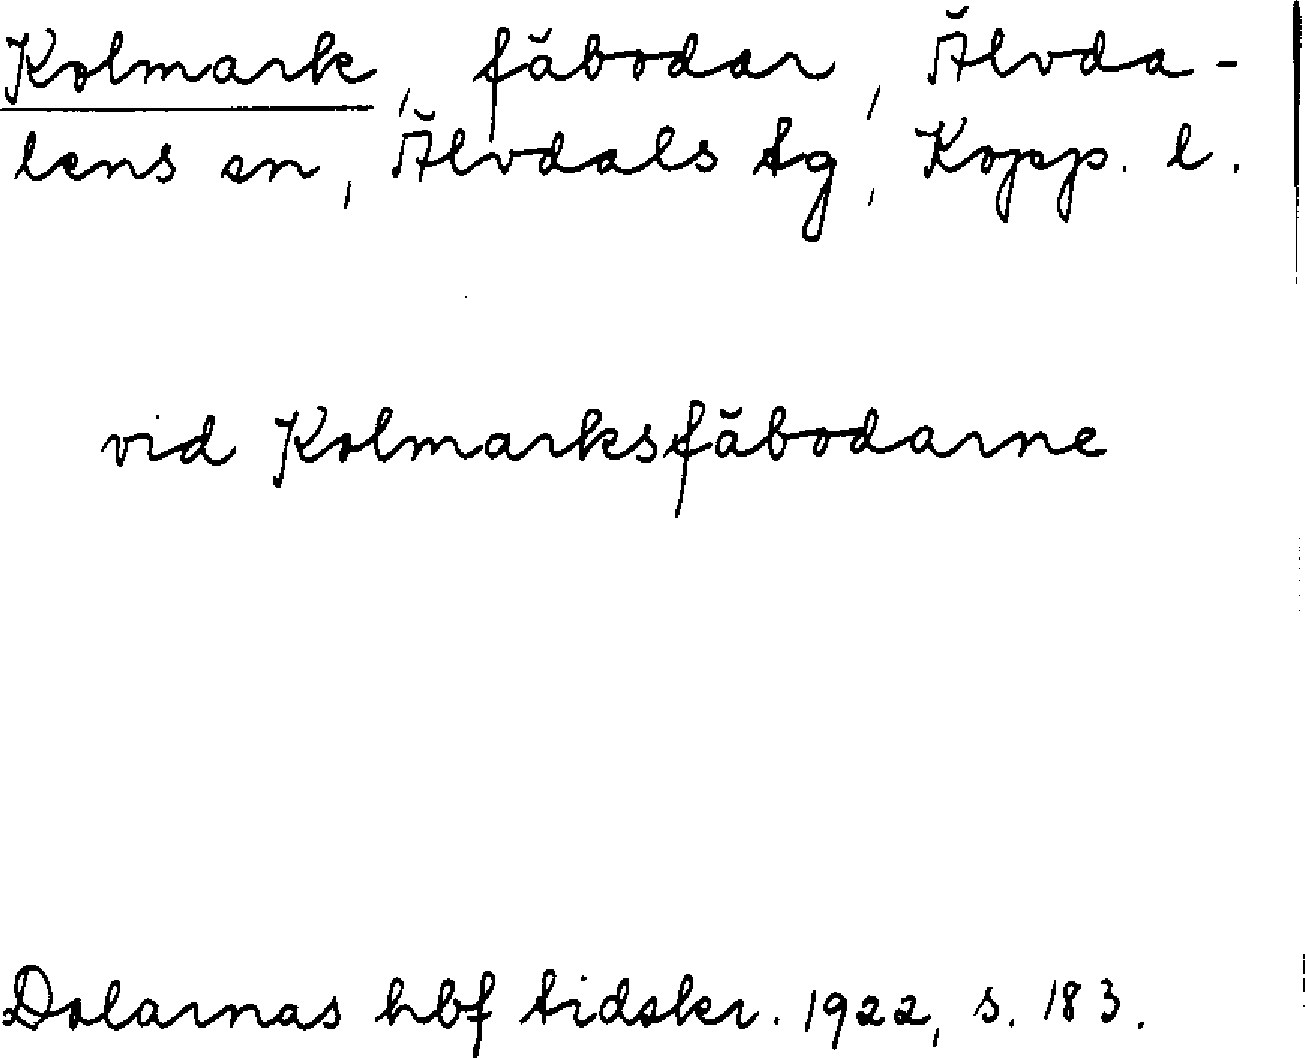 Kolmark, fäbodar, Älvda-
lens sn, Älvdals tg, Kopp. l.
vid Kolmarksfäbodarne
Dalarnas hbf tidskr. 1922, s. 183.